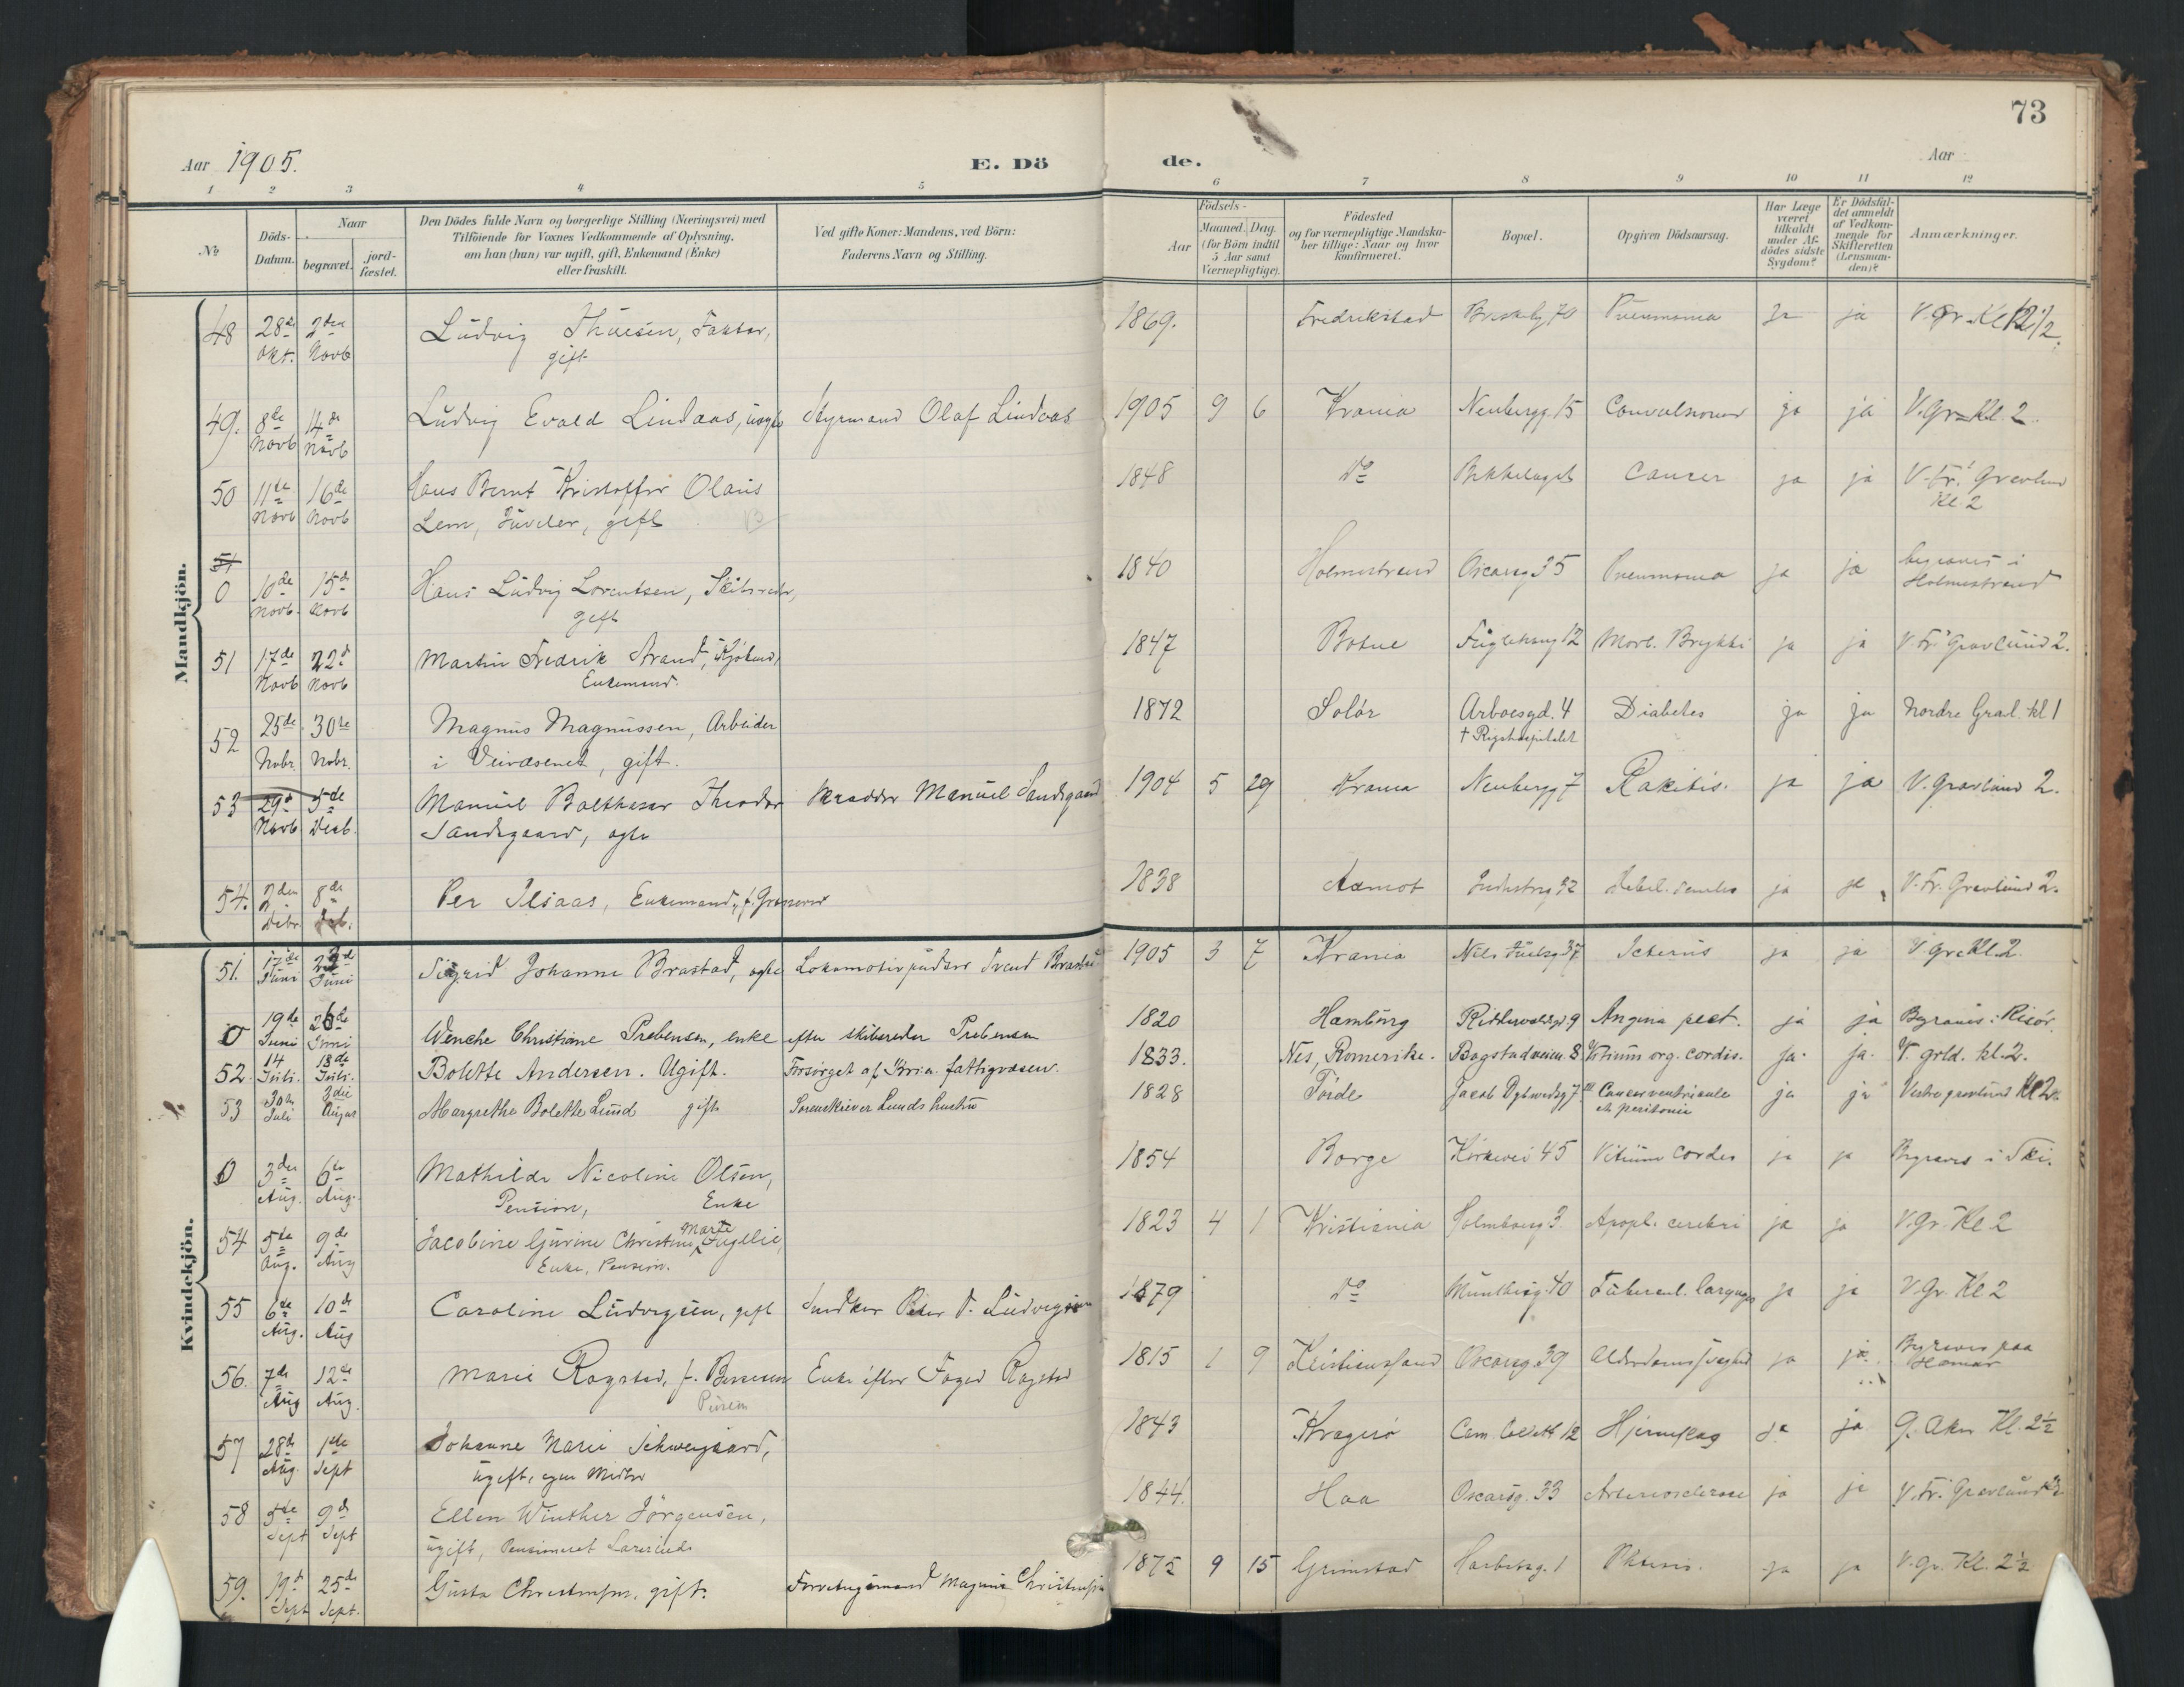 73
Aar 1905.
E. Dö de.
Aar
1 2 3 4 5 6 7 8 9 10 11 12
№
Döds-Datum.
Naar
begravet.
jord-fæstet.
Den Dödes fulde Navn og borgerlige Stilling (Næringsvei) med
Tilföiende for Voxnes Vedkommende af Oplysning,
om han (hun) var ugift, gift, Enkemand (Enke)
eller fraskilt.
Ved gifte Koner: Mandens, ved Börn:
Faderens Navn og Stilling.
Födsels-
Aar
Maaned. Dag.
(for Börn indtil
5 Aar samt
Værnepligtige).
Födested
og for værnepligtige Mandska-
ber tillige: Naar og hvor
konfirmeret.
Bopæl.
Opgiven Dödsaarsag.
Har Læge
været
tilkaldt
under Af-
dödes sidste
Sygdom?
Er Dödsfal-
det anmeldt
af Vedkom-
mende for
Skifteretten
(Lensman-
den)?
Anmærkninger.
Mandkjön.
48 28de 2den Ludvig Thuesen, Faktor, 1869. Fredrikstad Briskeby 70 Pneumonia ja ja V. Gr. Kl 12 1/2
Okt. Novb gift
49. 8de 14de Ludvig Evald Lindaas, uægte Styrmand Olaf Lindaas 1905 9 6 Krania Neubergg. 15 Convulsioner ja ja V. Gr. Kl. 2.
Novb Novb
50 11te 16de Hans Bernt Kristoffer Olaus 1848 do Bekkelaget Cancer ja ja V. Fr. Gravlund
Novb Novb Lem, Juveler, gift Kl. 2
51
0 10de 15de Hans Ludvig Lorentsen, Skibsreder, 1840 Holmestrand Oscarsg 35 Pneumonia ja ja begraves i
Novb. Novb gift Holmestrand
51 17de 22d Martin Fredrik Strand, 1847 Botne Fuglehaug 12 Morb. Brightii ja ja V. Fr. Gravlund 2.
Novb Novb Enkemand.
52 25de 30te Magnus Magnussen, Arbeider 1872 Solör Arboesgd. 4 Diabetes ja ja Nordre Gravl. kl 1
Nobr. Nobr. i Veivæsenet, gift. † Rigshospitalet
53 29d 5de Manuel Balthazar Theodor Skrædder Manuel Sandsgaard 1904 5 29 Krania Neubergg 7 Rakitis. ja ja V. Gravlund 2.
Novb Decb. Sandsgaard, ægte
54. 2den 8de Per Ilsaas, Enkemand, 1838 Aamot Industrig 32 ja ja V. Fr. Gravlund 2.
Debr. Deb.
Kvindekjön.
51. 17de 22d Sigrid Johanne Brastad, ægte Lokomotivpudser Brastad 1905 3 7 Krania Niels Juelsg 37 Icterus ja ja V gr. Kl. 2.
Juni Juni
0 19de 26de Wenche Christiane Prebensen, enke efter skibsreder Prebensen 1820 Hamburg Riddervoldsgd 9 Angina pect. ja ja Begraves i Risör.
Juni Juni
52. 14 18de Bolette Andersen. Ugift. Forsörget af Kr.a. fattigvæsen. 1833. Nes, Romerike. Bogstadveien 8 Vitium org. cordis. ja. ja. V. grld. kl. 2.
Juli. Juli.
53 30te 3die Margrethe Bolette Lund gift Sorenskriver Lunds hustru 1828 Förde Jacob Dybwadsg 7 Cancer ventriculi ja ja Vestre gravlund Kl 2.
Juli August et peritonei
0 3den 6te Mathilde Nicoline Olsen, 1854 Borge Kirkevei 45 Vitium cordis ja ja Begraves i Ski.
Aug. Aug. Pension, Enke
54 5te 9de Jacobine Gurine Christine Marie Fugllie, 1823 4 1 Kristiania Holmboesg. 3. Apopl. cerebri ja ja V. Gr. Kl 2
Aug. Aug Enke, Pension.
55 6te 10de Caroline Ludvigsen, gift Snedker Peder Ludvigsen 1879 do 40 Tubercul. laryngis ja ja V Gr. Kl 2
Aug. Aug
56. 7de 12te Marie Rogstad, f. Enke efter Foged Rogstad 1815 1 9 Kristiansand Oscarsg. 39 Alderdomssvaghed ja ja. Begraves paa
Aug Aug. Pension Hamar
57 28de 1ste Johanne Marie Schweigaard, 1843 Kragerø Cam. Collett 12 Hjerneslag ja ja G. Aker Kl. 2½
Aug. Sept ugift, egne Midler
58 5te 9de Ellen Winther Jörgensen, 1844. Haa Oscarsg. 33 Arteriosclerose ja ja V. Fr. Gravlund 2
Sept Sept ugift, Pensioneret Lærerinde
59. 19d 25de Gusta Christensen, gift. Forretningsmand Magnus Christensen 1875 9 15 Grimstad Harbitzg. 1 Phtisis. ja ja V. gr. Kl. 2½
Sept Sept.